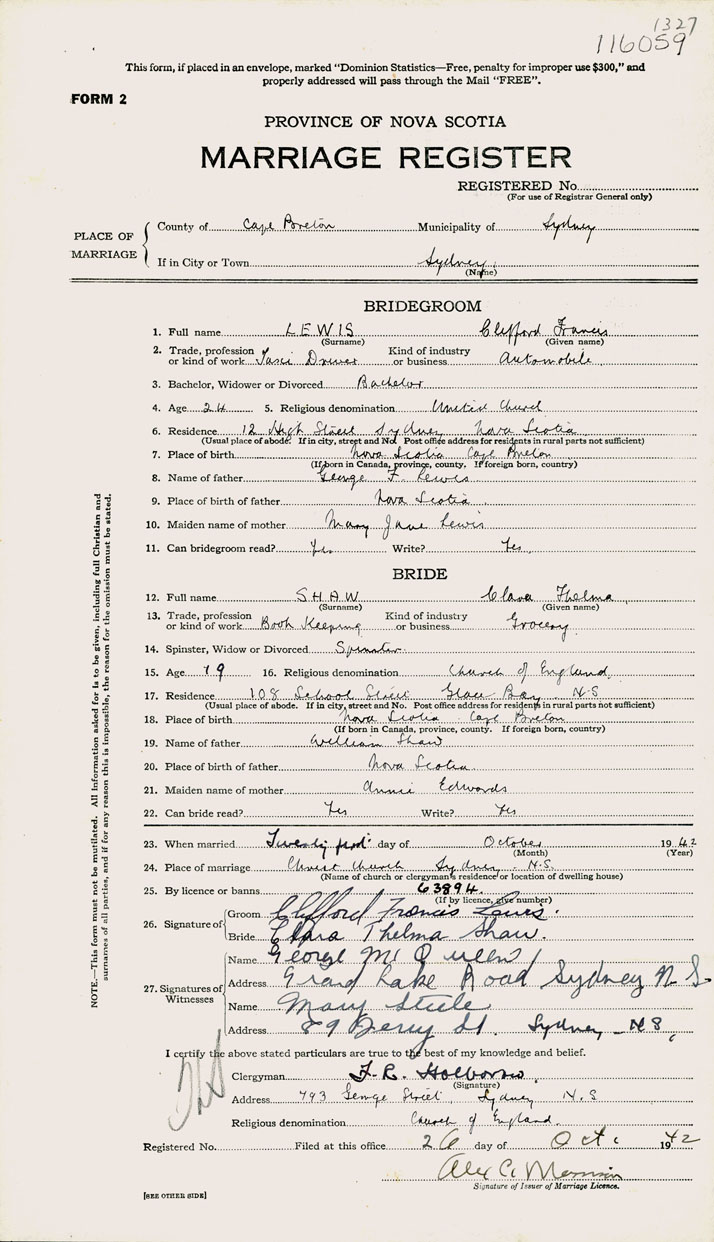 1327
116059
This form, if placed in an envelope, marked "Dominion Statistics—Free, penalty for improper use $300," and
properly addressed will pass through the Mail "FREE".
FORM 2
PROVINCE OF NOVA SCOTIA
MARRIAGE REGISTER
REGISTERED No.
(For use of Registrar General only)
PLACE OF MARRIAGE
County of Cape Breton Municipality of Sydney
If in City or Town Sydney
(Name)
BRIDEGROOM
1. Full name LEWIS Clifford Francis
(Surname) (Given name)
2. Trade, profession or kind of work Taxi Driver Kind of industry or business Automobile
3. Bachelor, Widower or Divorced Bachelor
4. Age 24 5. Religious denomination United Church
6. Residence 12 High Street Sydney Nova Scotia
(Usual place of abode. If in city, street and No. Post office address for residents in rural parts not sufficient)
7. Place of birth Nova Scotia Cape Breton
(If born in Canada, province, county. If foreign born, country)
8. Name of father George F. Lewis
9. Place of birth of father Nova Scotia
10. Maiden name of mother Mary Jane Lewis
11. Can bridegroom read? Yes Write? Yes
BRIDE
12. Full name SHAW Clara Thelma
(Surname) (Given name)
13. Trade, profession or kind of work Book Keeping Kind of industry or business Grocery
14. Spinster, Widow or Divorced Spinster
15. Age 19 16. Religious denomination Church of England
17. Residence 108 School Street Glace Bay N.S
(Usual place of abode. If in city, street and No. Post office address for residents in rural parts not sufficient)
18. Place of birth Nova Scotia Cape Breton
(If born in Canada, province, county. If foreign born, country)
19. Name of father William Shaw
20. Place of birth of father Nova Scotia
21. Maiden name of mother Annie Edwards
22. Can bride read? Yes Write? Yes
23. When married Twenty day of October 1942
(Month) (Year)
24. Place of marriage Christ Church Sydney N.S.
(Name of church or clergyman's residence or location of dwelling house)
25. By licence or banns 63894.
(If by licence, give number)
26. Signature of
Groom Clifford Francis Lewis.
Bride Clara Thelma Shaw.
27. Signatures of Witnesses
Name George McQueen
Address Grand Lake Road Sydney N S
Name Mary Steele
Address 89 St. Sydney N S,
I certify the above stated particulars are true to the best of my knowledge and belief.
Clergyman F. R. Holborow.
(Signature)
Address 793 George Street, Sydney N.S
Religious denomination Church of England
Registered No. Filed at this office 26 day of Oct. 1942
Alex C.
Signature of Issuer of Marriage Licence.
[SEE OTHER SIDE]
NOTE.—This form must not be mutilated. All information asked for is to be given, including full Christian and
surnames of all parties, and if for any reason this is impossible, the reason for the omission must be stated.